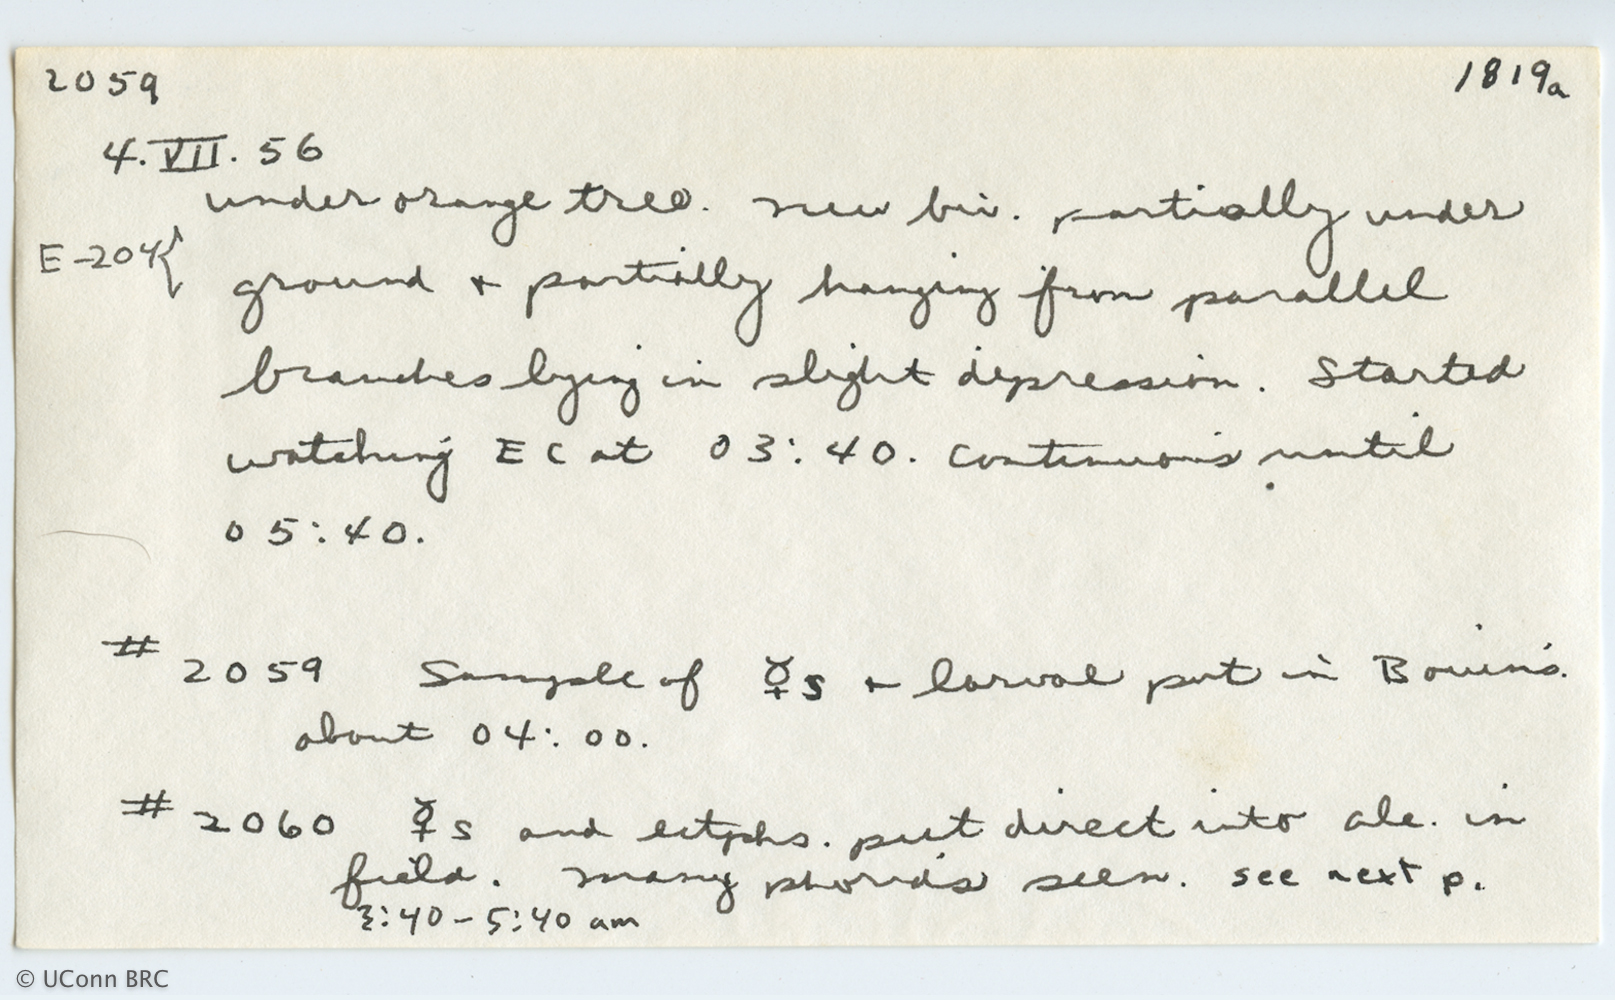 2059 1819a
4. VII. 56
under orange tree. new biv. partially under
E-204 { ground + partially hanging from parallel
branches lying in slight depression. Started
watching EC at 03:40. Continuous until
05:40.
# 2059 Sample of ☿s + larval put in Bouin's.
about 04:00.
# 2060 ☿s and ectphs. put direct into alc. in
field. Many phorids seen. see next p.
3:40-5:40 am
© UConn BRC